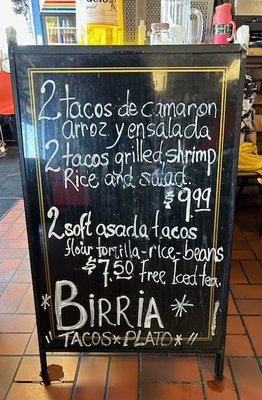 2 tacos de camaron
arroz y ensalada
2 tacos grilled, shrimp
Rice and salad.
$9.99
2 soft asada tacos
flour tortilla-rice-beans
$7.50 free Iced tea.
BiRRiA
"TACOS * PLATO"